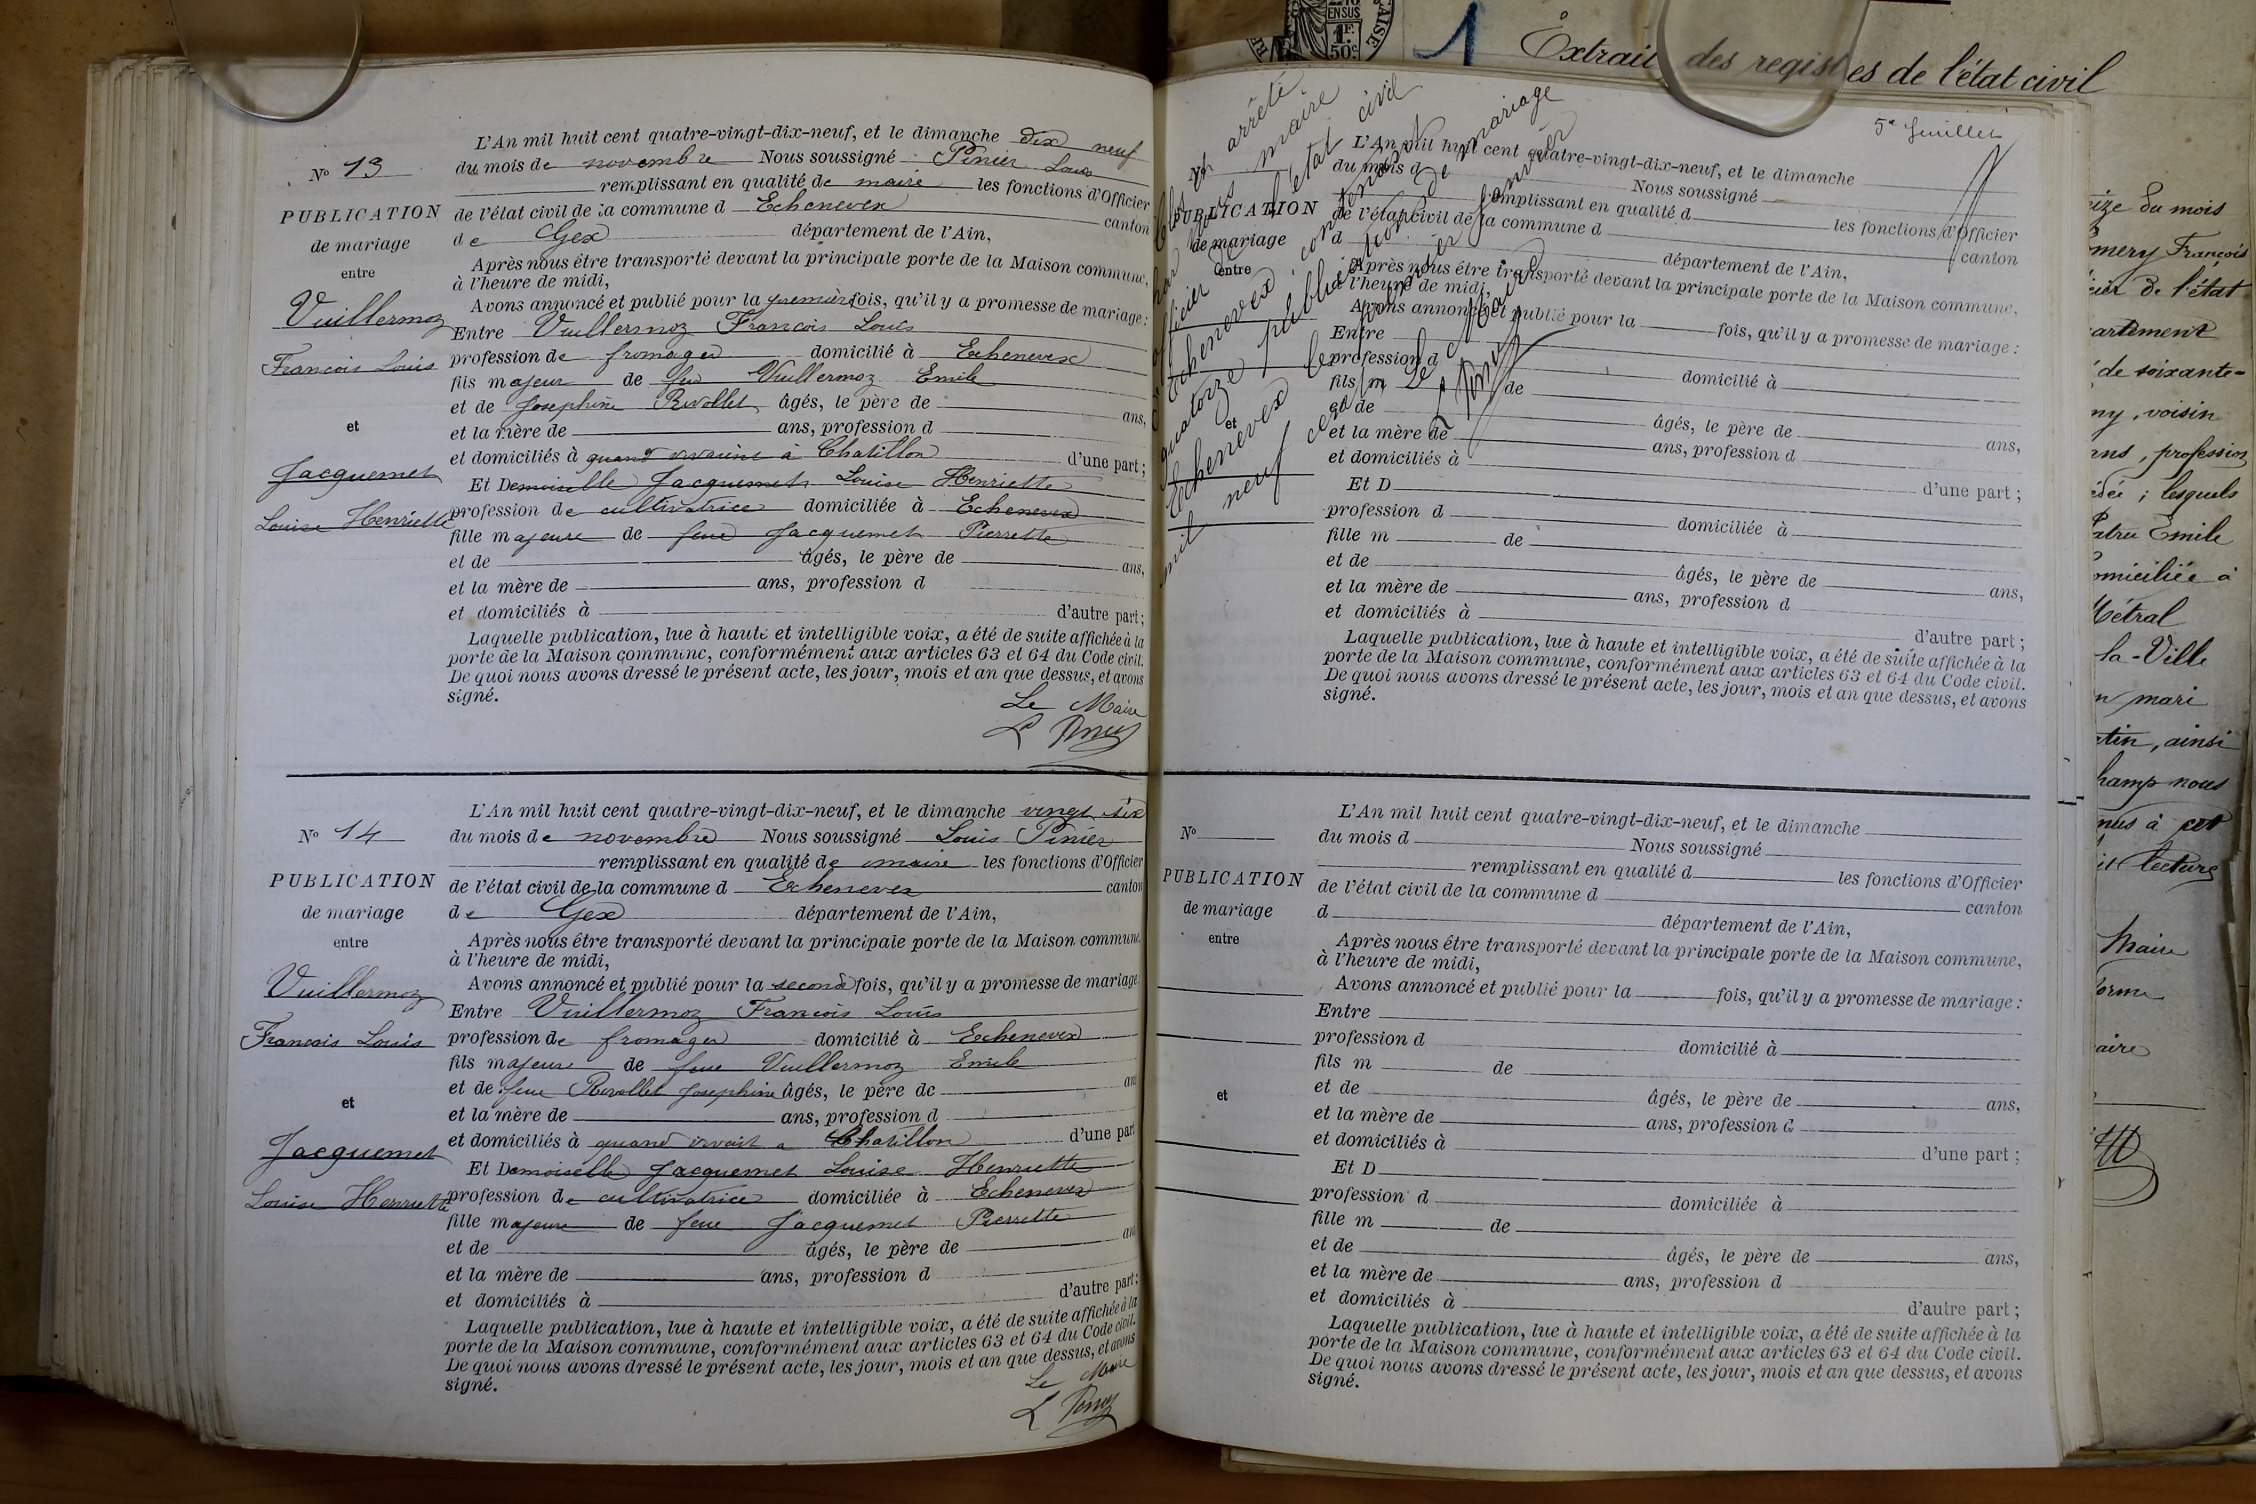 L'An mil huit cent quatre-vingt-dix-neuf, et le dimanche dix neuf
No 13
du mois de novembre Nous soussigné Pinier Louis
remplissant en qualité de maire les fonctions d'Officier
PUBLICATION
de l'état civil de la commune d Echenevex canton
de mariage
de Gex département de l'Ain,
entre
Après nous être transporté devant la principale porte de la Maison commune,
à l'heure de midi,
Avons annoncé et publié pour la première fois, qu'il y a promesse de mariage :
Vuillermoz
Entre Vuillermoz François Louis
François Louis
profession de fromager domicilié à Echenevex
fils majeur de feu Vuillermoz Emile
et de Josephine Revollet âgés, le père de ans,
et
et la mère de ans, profession d
et domiciliés à quand vivaient à Chatillon d'une part ;
Jacquemet
Et Demoiselle Jacquemet Louise Henriette
Louise Henriette
profession de cultivatrice domiciliée à Echenevex
fille majeure de feue Jacquemet Pierrette
et de âgés, le père de ans,
et la mère de ans, profession d
et domiciliés à d'autre part ;
Laquelle publication, lue à haute et intelligible voix, a été de suite affichée à la
porte de la Maison commune, conformément aux articles 63 et 64 du Code civil.
De quoi nous avons dressé le présent acte, les jour, mois et an que dessus, et avons
signé.
Le Maire
L Pinier
L'An mil huit cent quatre-vingt-dix-neuf, et le dimanche vingt six
No 14
du mois de novembre Nous soussigné Louis Pinier
remplissant en qualité de maire les fonctions d'Officier
PUBLICATION
de l'état civil de la commune d Echenevex canton
de mariage
de Gex département de l'Ain,
entre
Après nous être transporté devant la principale porte de la Maison commune,
à l'heure de midi,
Avons annoncé et publié pour la second fois, qu'il y a promesse de mariage
Vuillermoz
Entre Vuillermoz François Louis
François Louis
profession de fromager domicilié à Echenevex
fils majeur de feue Vuillermoz Emile
et de feue Revollet Josephine âgés, le père de ans
et
et la mère de ans, profession d
et domiciliés à quand vivait a Chatillon d'une part
Jacquemet
Et Demoiselle Jacquemet Louise Henriette
Louise Henriette
profession de cultivatrice domiciliée à Echenevex
fille majeure de feue Jacquemet Pierrette
et de âgés, le père de an
et la mère de ans, profession d
et domiciliés à d'autre part ;
Laquelle publication, lue à haute et intelligible voix, a été de suite affichée à la
porte de la Maison commune, conformément aux articles 63 et 64 du Code civil.
De quoi nous avons dressé le présent acte, les jour, mois et an que dessus, et avons
signé.
Le Maire
L Pinier
5e feuillet
arrêté
par nous maire
officier de l'état civil
Echenevex contenant
quatorze publications de mariage
Echenevex le premier janvier
mil neuf cent
Le Maire
L Pinier
L'An mil huit cent quatre-vingt-dix-neuf, et le dimanche
No
du mois d Nous soussigné
remplissant en qualité d les fonctions d'Officier
PUBLICATION
de l'état civil de la commune d canton
de mariage
d département de l'Ain,
entre
Après nous être transporté devant la principale porte de la Maison commune,
à l'heure de midi,
Avons annoncé et publié pour la fois, qu'il y a promesse de mariage :
Entre
profession d domicilié à
fils m de
et de âgés, le père de ans,
et
et la mère de ans, profession d
et domiciliés à d'une part ;
Et D
profession d domiciliée à
fille m de
et de âgés, le père de ans,
et la mère de ans, profession d
et domiciliés à d'autre part ;
Laquelle publication, lue à haute et intelligible voix, a été de suite affichée à la
porte de la Maison commune, conformément aux articles 63 et 64 du Code civil.
De quoi nous avons dressé le présent acte, les jour, mois et an que dessus, et avons
signé.
L'An mil huit cent quatre-vingt-dix-neuf, et le dimanche
No
du mois d Nous soussigné
remplissant en qualité d les fonctions d'Officier
PUBLICATION
de l'état civil de la commune d canton
de mariage
d département de l'Ain,
entre
Après nous être transporté devant la principale porte de la Maison commune,
à l'heure de midi,
Avons annoncé et publié pour la fois, qu'il y a promesse de mariage :
Entre
profession d domicilié à
fils m de
et de âgés, le père de ans,
et
et la mère de ans, profession d
et domiciliés à d'une part ;
Et D
profession d domiciliée à
fille m de
et de âgés, le père de ans,
et la mère de ans, profession d
et domiciliés à d'autre part ;
Laquelle publication, lue à haute et intelligible voix, a été de suite affichée à la
porte de la Maison commune, conformément aux articles 63 et 64 du Code civil.
De quoi nous avons dressé le présent acte, les jour, mois et an que dessus, et avons
signé.
ENSUS
1 F.
50 c
1 Extrait des registres de l'état civil
du mois
François
de l'état
de soixante-
voisin
ans, profession
lesquels
Emile
domiciliée à
Métral
la-Ville
mari
ainsi
nous
à cet
lecture
Maire